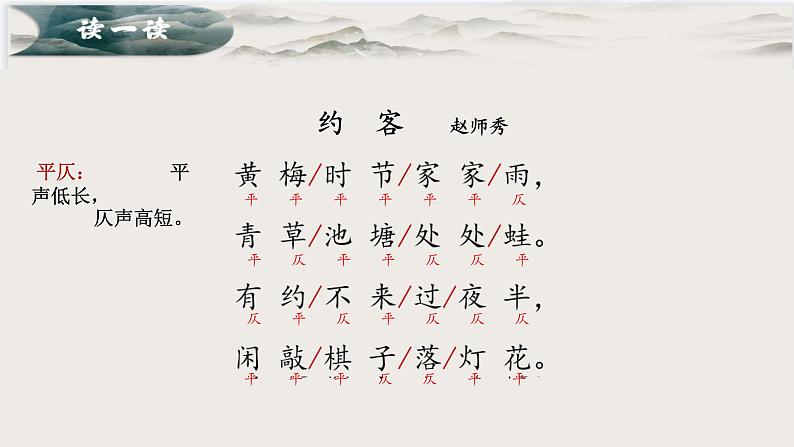 读一读
约 客 赵师秀
平仄: 平
声低长,
仄声高短。
黄梅/时节/家家/雨,
平 平 平 平 平 平 仄
青草/池塘/处处/蛙。
平 仄 平 平 仄 仄 平
有约/不来/过/夜半,
仄 平 仄 平 仄 仄 仄
闲敲/棋子/落/灯花。
平 平 平 仄 仄 平 平